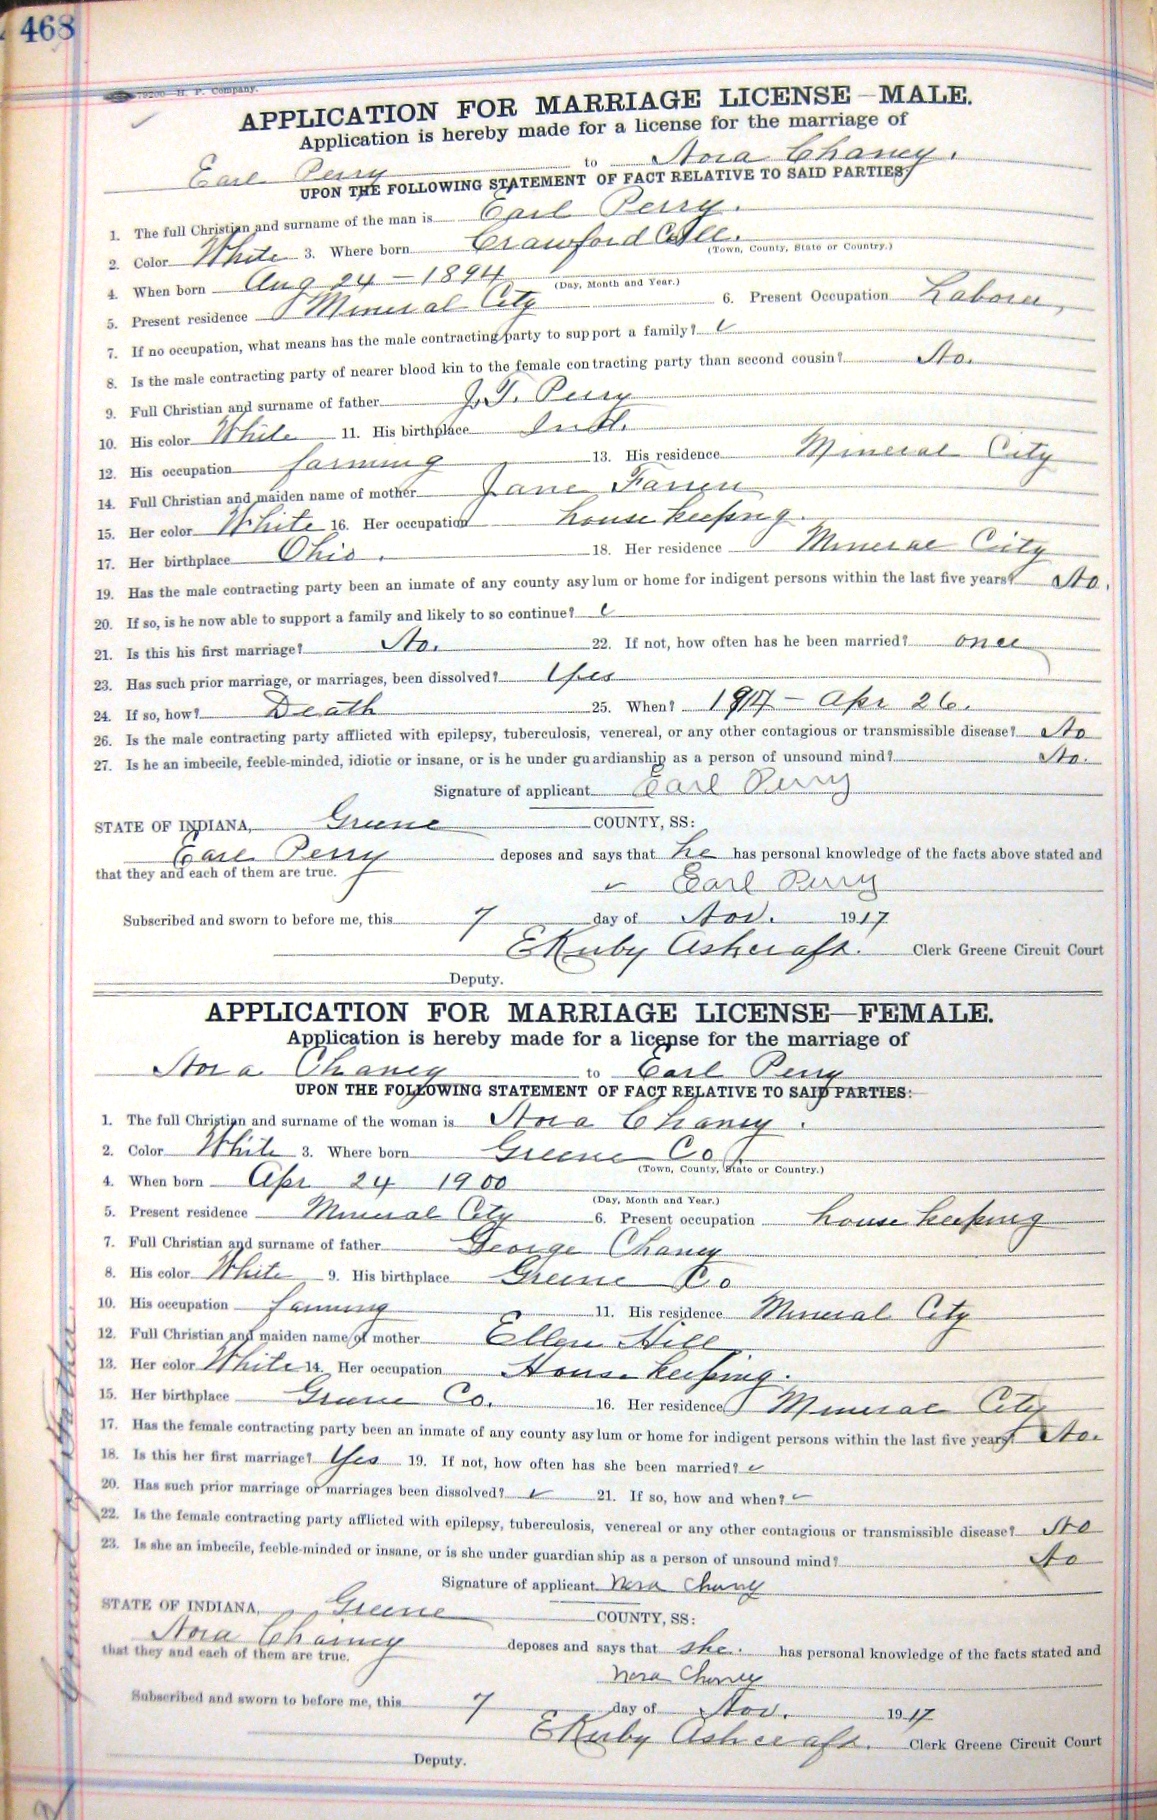 468
79200 H. P. Company.
APPLICATION FOR MARRIAGE LICENSE—MALE.
Application is hereby made for a license for the marriage of
Earl Perry to Nora Chaney.
UPON THE FOLLOWING STATEMENT OF FACT RELATIVE TO SAID PARTIES:
1. The full Christian and surname of the man is Earl Perry.
2. Color White 3. Where born Crawford Co Ill.
(Town, County, State or Country.)
4. When born Aug 24 - 1894
(Day, Month and Year.)
5. Present residence Mineral City 6. Present Occupation Laborer,
7. If no occupation, what means has the male contracting party to support a family? ✓
8. Is the male contracting party of nearer blood kin to the female contracting party than second cousin? No.
9. Full Christian and surname of father J. T. Perry
10. His color White 11. His birthplace Ind.
12. His occupation farming 13. His residence Mineral City
14. Full Christian and maiden name of mother Jane
15. Her color White 16. Her occupation house keeping.
17. Her birthplace Ohio. 18. Her residence Mineral City
19. Has the male contracting party been an inmate of any county asylum or home for indigent persons within the last five years? No.
20. If so, is he now able to support a family and likely to so continue? ✓
21. Is this his first marriage? No. 22. If not, how often has he been married? once
23. Has such prior marriage, or marriages, been dissolved? Yes
24. If so, how? Death 25. When? 1917 - Apr 26.
26. Is the male contracting party afflicted with epilepsy, tuberculosis, venereal, or any other contagious or transmissible disease? No
27. Is he an imbecile, feeble-minded, idiotic or insane, or is he under guardianship as a person of unsound mind? No.
Signature of applicant Earl Perry
STATE OF INDIANA, Greene COUNTY, SS:
Earl Perry deposes and says that he has personal knowledge of the facts above stated and
that they and each of them are true.
✓ Earl Perry
Subscribed and sworn to before me, this 7 day of Nov. 1917
E Kirby Ashcraft. Clerk Greene Circuit Court
Deputy.
APPLICATION FOR MARRIAGE LICENSE—FEMALE.
Application is hereby made for a license for the marriage of
Nora Chaney to Earl Perry
UPON THE FOLLOWING STATEMENT OF FACT RELATIVE TO SAID PARTIES:
1. The full Christian and surname of the woman is Nora Chaney.
2. Color White 3. Where born Greene Co
(Town, County, State or Country.)
4. When born Apr 24 1900
(Day, Month and Year.)
5. Present residence Mineral City 6. Present occupation house keeping
7. Full Christian and surname of father George Chaney
8. His color White 9. His birthplace Greene Co
10. His occupation farming 11. His residence Mineral City
12. Full Christian and maiden name of mother Ellen Hill
13. Her color White 14. Her occupation House keeping.
15. Her birthplace Greene Co. 16. Her residence Mineral City
17. Has the female contracting party been an inmate of any county asylum or home for indigent persons within the last five years? No.
18. Is this her first marriage? Yes 19. If not, how often has she been married? ✓
20. Has such prior marriage or marriages been dissolved? ✓ 21. If so, how and when? ✓
22. Is the female contracting party afflicted with epilepsy, tuberculosis, venereal or any other contagious or transmissible disease? No
23. Is she an imbecile, feeble-minded or insane, or is she under guardianship as a person of unsound mind? No
Signature of applicant Nora Chaney
STATE OF INDIANA, Greene COUNTY, SS:
Nora Chainey deposes and says that she. has personal knowledge of the facts stated and
that they and each of them are true.
Nora Chaney
Subscribed and sworn to before me, this 7 day of Nov. 1917
E Kirby Ashcraft. Clerk Greene Circuit Court
Deputy.
Consent of Father